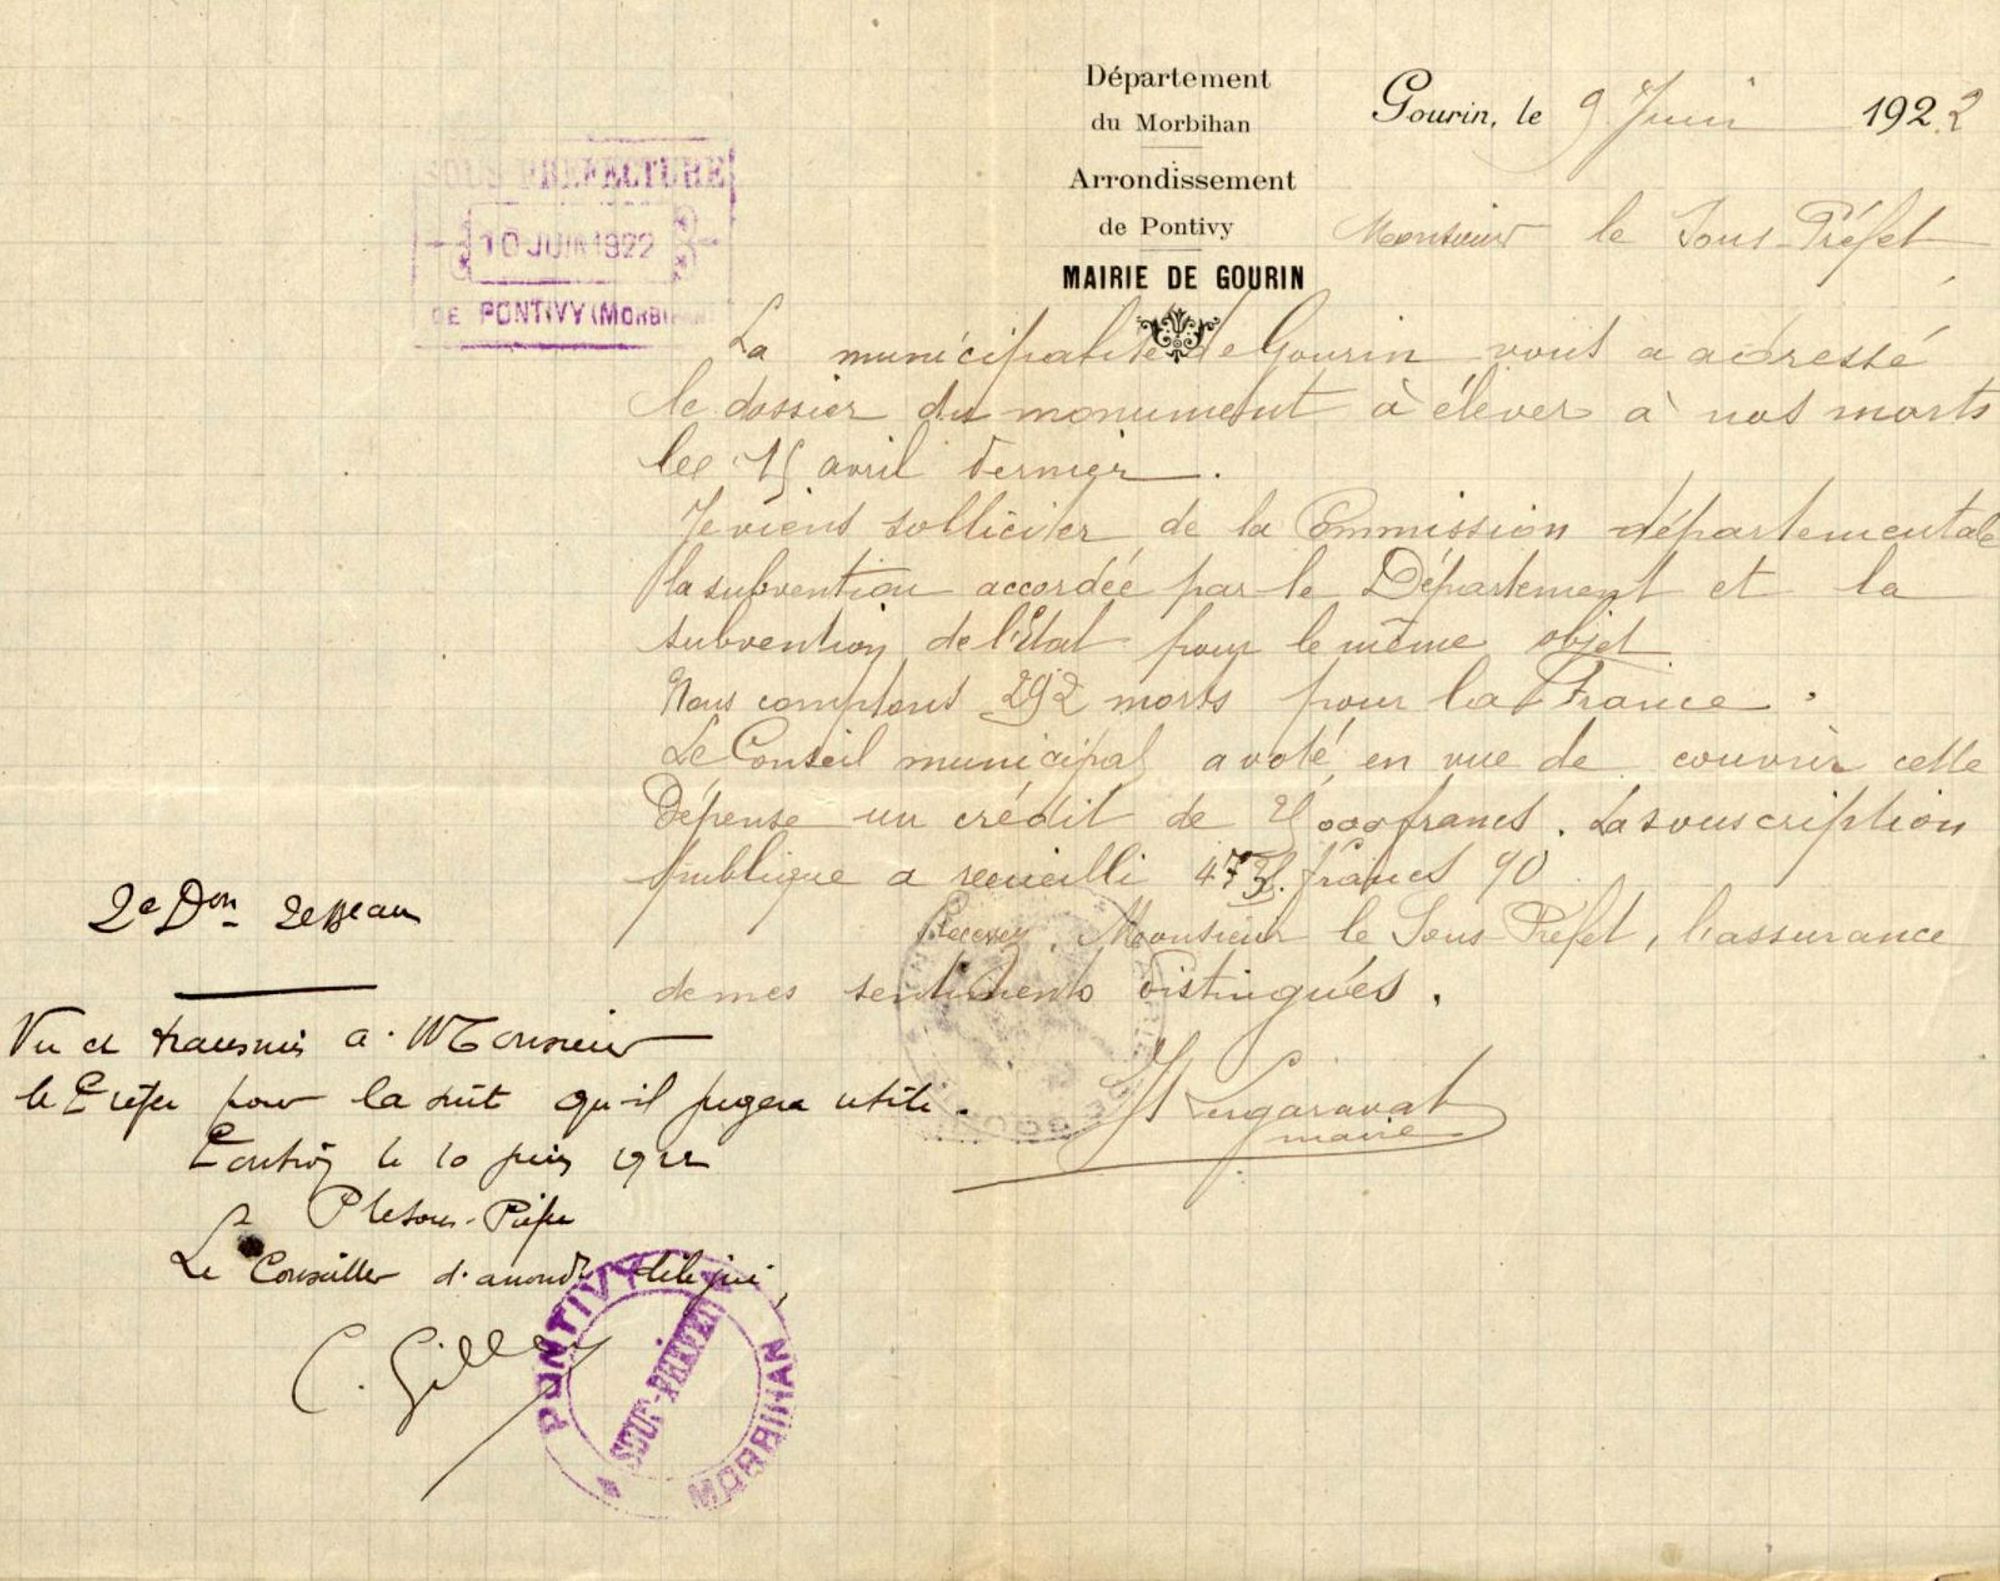 Département
du Morbihan
Arrondissement
de Pontivy
MAIRIE DE GOURIN
Gourin, le 9 Juin 1922
SOUS-PRÉFECTURE
10 JUIN 1922
DE PONTIVY (MORBIHAN)
Monsieur le Sous-Préfet
La municipalité de Gourin vous a adressé
le dossier du monument à élever à nos morts
le 15 avril dernier.
Je viens solliciter de la Commission départementale
la subvention accordée par le Département et la
subvention de l'Etat pour le même objet
Nous comptons 292 morts pour la France.
Le Conseil municipal a voté en vue de couvrir cette
Dépense un crédit de francs. La souscription
publique a recueilli francs 90
Recevez, Monsieur le Sous-Préfet, l'assurance
de mes sentiments distingués.
maire
2e Don
Vu et transmis à Monsieur
le Préfet pour la suite qu'il jugera utile.
Pontivy le 10 juin 1922
P le Sous-Préfet
Le Conseiller d'arrondt délégué,
PONTIVY
SOUS-PRÉFECT
MORBIHAN